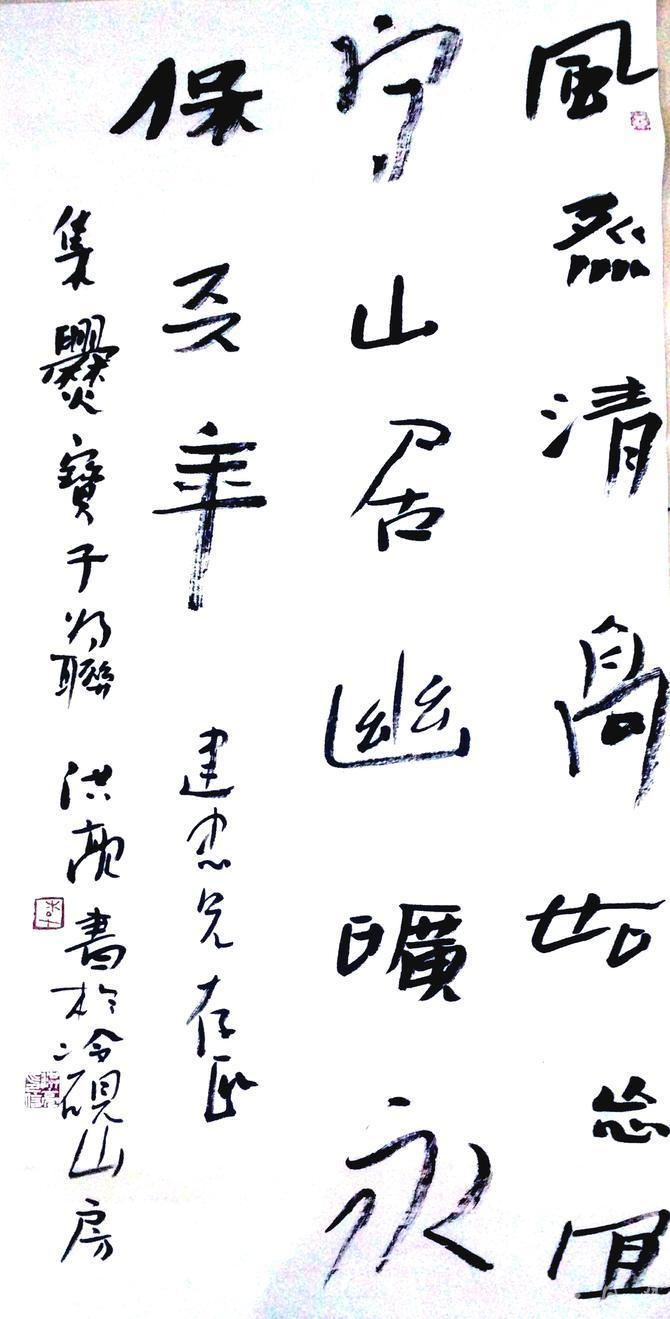 風烈清高如宜
宁山居幽曠永
保天年 建忠兄存正
集爨寶子为聯 洪 書於冷硯山房